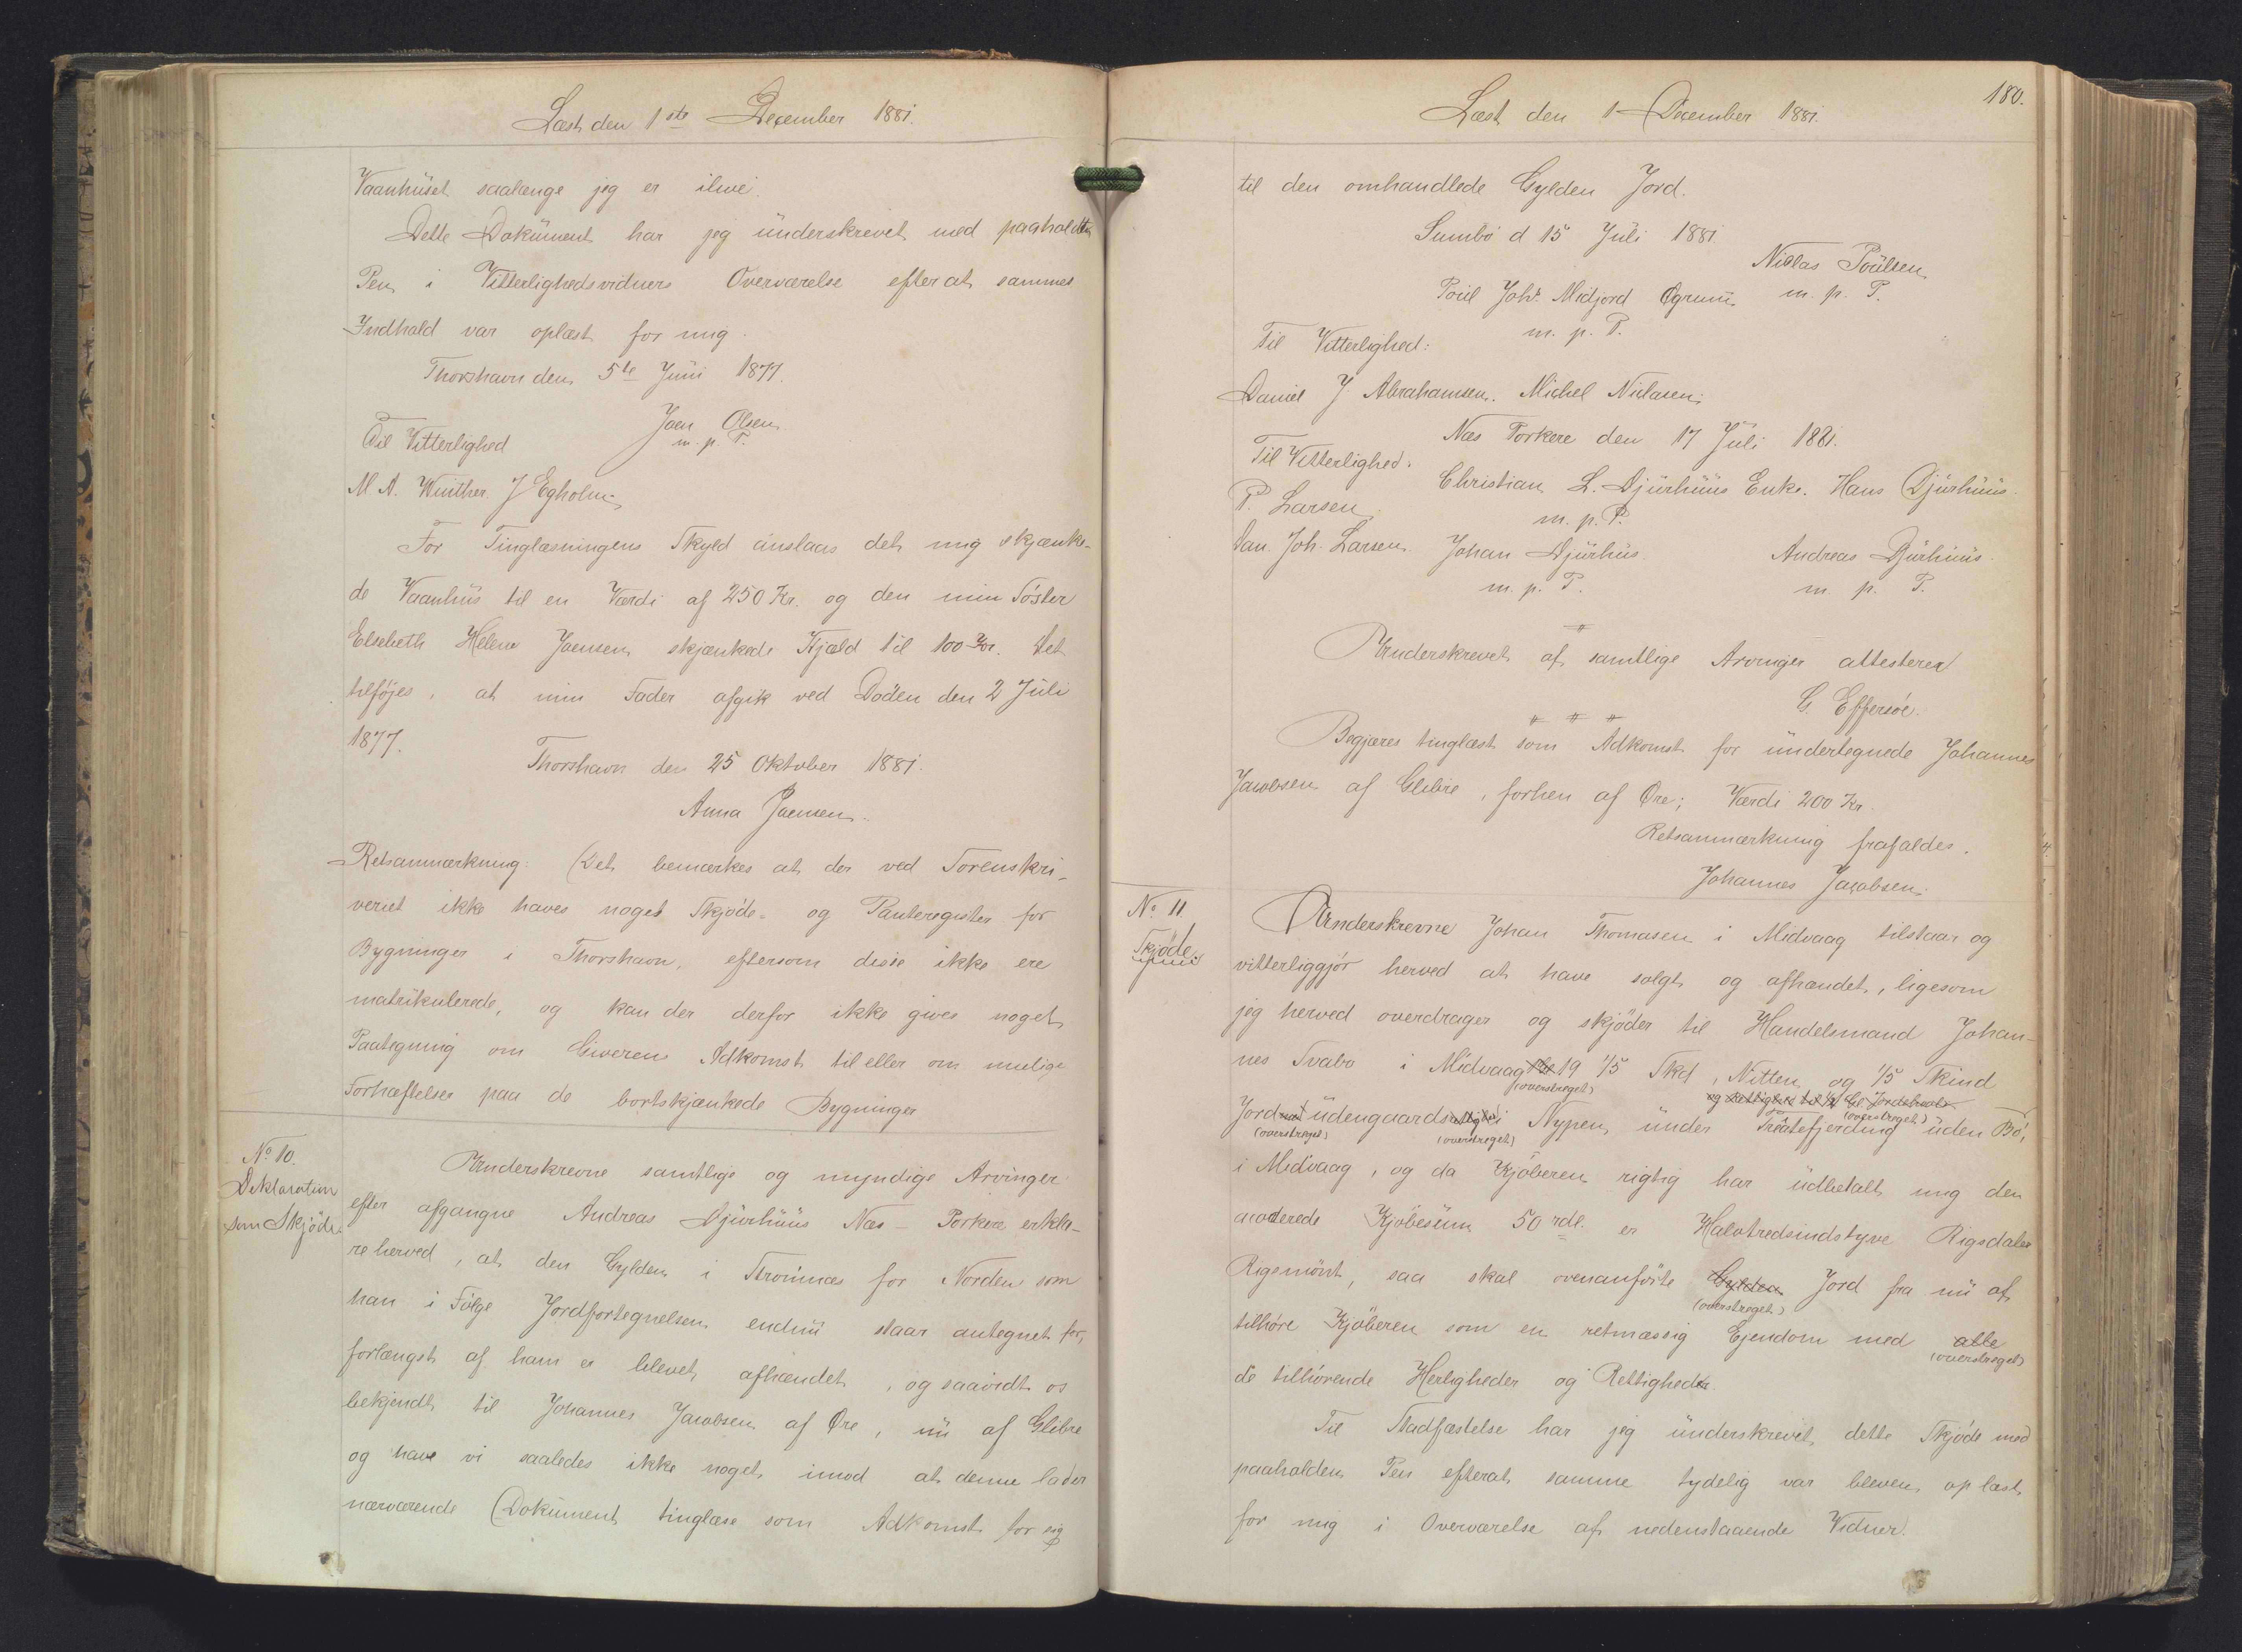 Læst den 1ste December 1881.
Vaanhüset saalænge jeg er ilive.
Dette Doküment har jeg ünderskrevet med paaholdte
Pen i Vitterlighedsvidners Overværelse efterat sammes
Indhold var oplæst for mig.
Thorshavn den 5te Jüni 1877.
Joen Olsen
m. p. P.
Til Vitterlighed
M A. Winther. J Egholm
For Tinglæsningens Skyld anslaas det mig skjænke-
de Vaanhüs til en Værdi af 250 Kr. og den min Söster
Elsebeth Helene Joensen skjænkede Kjæld til 100 Kr. Det
tilföjes, at min Fader afgik ved Döden den 2 Jüli
1877.
Thorshavn den 25 Oktober 1881.
Anna Joensen.
Retsanmærkning: Det bemærkes at der ved Sorenskri-
veriet ikke haves noget Skjöde- og Panteregister for
Bygninger i Thorshavn, eftersom disse ikke ere
matrikulerede, og kan der derfor ikke gives noget
Paategning om Giverens Adkomst til eller om mulige
Forhæftelser paa de bortskjænkede Bygninger
No 10.
Deklaration
som Skjöde.
Underskrevne samtlige og myndige Arvinger
efter afgangne Andreas Djürhüüs Næs - Porkere erklæ-
re herved, at den Gylden iStrömnæs for Norden som
han i Fölge Jordfortegnelsen endnü staar antegnet for,
forlængst af ham er blevet afhændet, og saavidt os
bekjendt til Johannes Jacobsen af Øre, nü af Glibre
og have vi saaledes ikke noget imod at denne lader
nærværende Doküment tinglæse som Adkomst for sig
180.
Læst den 1 December 1881.
til den omhandlede Gylden Jord.
Sumbö d 15 Jüli 1881.
Niclas Poülsen
m. p. P.
Poül Johs. Midjord Øgrum
m. p. P.
Til Vitterlighed:
Daniel J Abrahamsen. Michel Niclasen.
Næs Porkere den 17 Jüli 1881.
Til Vitterlighed.
Christian L. Djürhüüs Enke. Hans Djürhüüs.
P. Larsen
m. p. P.
Dan. Joh. Larsen. Johan Djürhüs. Andreas Djürhüüs.
m. p. P. m. p. P.
Underskrevet af samtlige Arvinger attesterer
G. Effersöe.
Begjæres tinglæst som Adkomst for ündertegnede Johannes
Jacobsen af Glibre, forhen af Øre; Værdi 200 Kr.
Retsanmærkning frafaldes.
Johannes Jacobsen.
No 11
Skjöde.
Underskrevne Johan Thomasen i Midvaag tilstaar og
vitterliggjör herved at have solgt og afhændet, ligesom
jeg herved overdrager og skjöder til Handelsmand Johan-
nes Svabo i Midvaag 19 1/5 Skd, Nitten og 1/5 Skind
(overstreget)
og Rettighed til 1/2
(overstreget)
Jord üdengaards i Nypen ünder fjerding üden Bö,
(overstreget) (overstreget)
i Midvaag, og da Kjöberen rigtig har üdbetalt mig den
accorderede Kjöbesüm 50 rdl. er Halvtredsindstyve Rigsdaler
Rigsmönt, saa skal ovenanförte Gylden Jord fra nü af
(overstreget)
tilhöre Kjöberen som en retmæssig Ejendom med alle
(overstreget)
de tilhörende Herligheder og Rettigheder.
Til Stadfæstelse har jeg ünderskrevet dette Skjöde med
paaholden Pen efterat samme tydelig var bleven op læst
for mig i Overværelse af nedenstaaende Vidner.